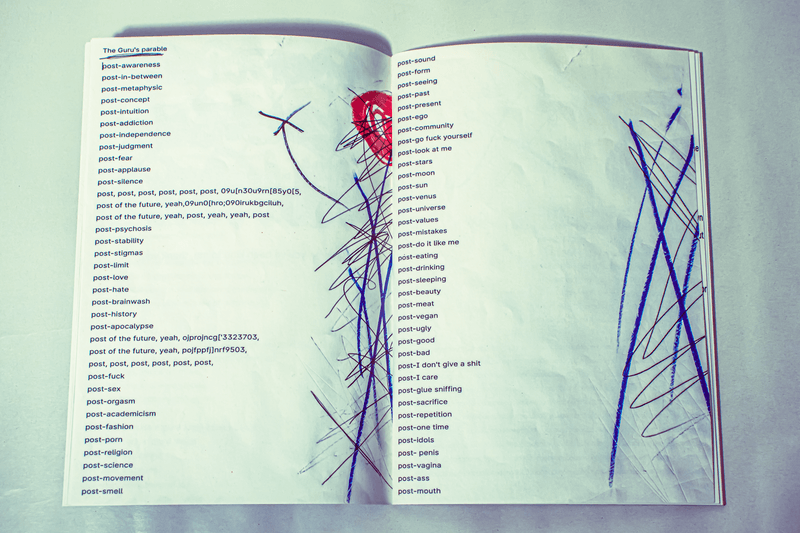 The Guru's parable
post-awareness
post-in-between
post-metaphysic
post-concept
post-intuition
post-addiction
post-independence
post-judgment
post-fear
post-applause
post-silence
post, post, post, post, post, post, 09u[n30u9rn[85y0[5,
post of the future, yeah,09un0[hro;090irukbgciluh,
post of the future, yeah, post, yeah, yeah, post
post-psychosis
post-stability
post-stigmas
post-limit
post-love
post-hate
post-brainwash
post-history
post-apocalypse
post of the future, yeah, ojprojncg['3323703,
post of the future, yeah, pojfppfj]nrf9503,
post, post, post, post, post, post,
post-fuck
post-sex
post-orgasm
post-academicism
post-fashion
post-porn
post-religion
post-science
post-movement
post-smell
post-sound
post-form
post-seeing
post-past
post-present
post-ego
post-community
post-go fuck yourself
post-look at me
post-stars
post-moon
post-sun
post-venus
post-universe
post-values
post-mistakes
post-do it like me
post-eating
post-drinking
post-sleeping
post-beauty
post-meat
post-vegan
post-ugly
post-good
post-bad
post-I don't give a shit
post-I care
post-glue sniffing
post-sacrifice
post-repetition
post-one time
post-idols
post- penis
post-vagina
post-ass
post-mouth